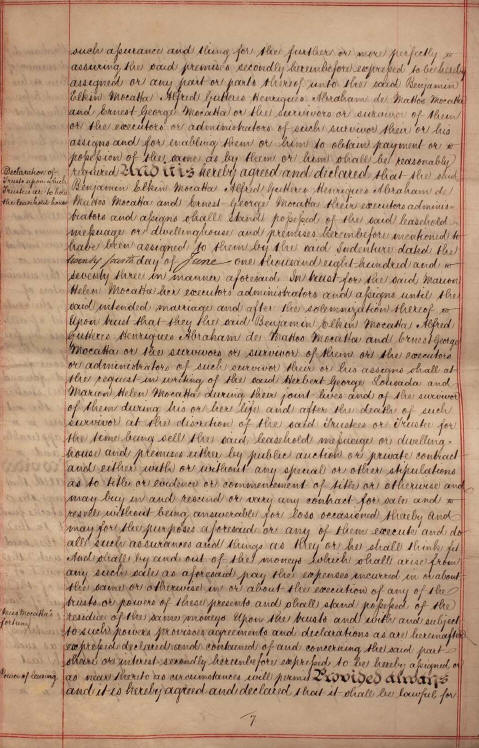 such assurance and thing for the further or more perfectly
assuring the said premises secondly hereinbefore expressed to be hereby
assigned or any part or parts thereof unto the said Benjamin
Elkin Mocatta Alfred Gutteres Henriques Abraham de Mattos Mocatta
and Ernest George Mocatta or the survivors or survivor of them
or the executors or administrators of such survivor their or his
assigns and for enabling them or him to obtain payment or
possession of the same as by them or him shall be reasonably
required And it is hereby agreed and declared that the said
Declaration of
Trusts upon which
Trustees are to hold
the leasehold house
Benjamin Elkin Mocatta Alfred Gutteres Henriques Abraham de
Mattos Mocatta and Ernest George Mocatta their executors adminis-
trators and assigns shall stand possessed of the said leasehold
messuage or dwellinghouse and premises hereinbefore mentioned to
have been assigned to them by the said Indenture dated the
twenty fourth day of June one thousand eight hundred and
seventy three in manner aforesaid In trust for the said Marion
Helen Mocatta her executors administrators and assigns until the
said intended marriage and after the solemnization thereof
Upon trust that they the said Benjamin Elkin Mocatta Alfred
Gutteres Henriques Abraham de Mattos Mocatta and Ernest George
Mocatta or the survivors or survivor of them or the executors
or administrators of such survivor their or his assigns shall at
the request in writing of the said Herbert George Lousada and
Marion Helen Mocatta during their joint lives and of the survivor
of them during his or her life and after the death of such
survivor at the discretion of the said Trustees or Trustee for
the time being sell the said leasehold messuage or dwelling-
house and premises either by public auction or private contract
and either with or without any special or other stipulations
as to title or evidence or commencement of title or otherwise and
may buy in and rescind or vary any contract for sale and
resell without being answerable for loss occasioned thereby And
may for the purposes aforesaid or any of them execute and do
all such assurances and things as they or he shall think fit
And shall by and out of the moneys which shall arise from
any such sale as aforesaid pay the expenses incurred in or about
the same or otherwise in or about the execution of any of the
trusts or powers of these presents and shall stand possessed of the
Miss Mocatta's
fortune
residue of the same moneys Upon the trusts and with and subject
to such powers provisoes agreements and declarations as are hereinafter
expressed declared and contained of and concerning the said part
share or interest secondly hereinbefore expressed to be hereby assigned or
Power of leasing
as near thereto as circumstances will permit Provided always
and it is hereby agreed and declared that it shall be lawful for
7